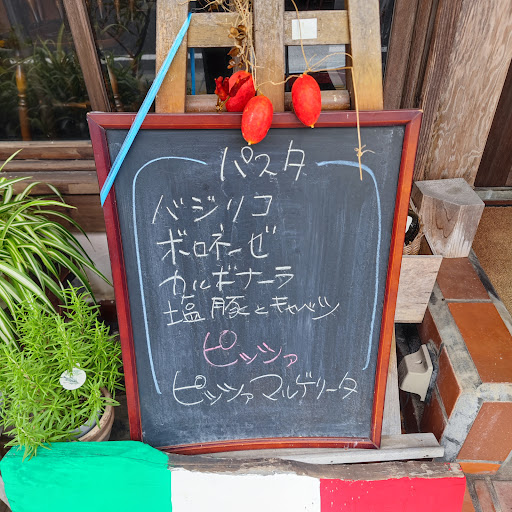 パスタ
バジリコ
ボロネーゼ
カルボナーラ
塩豚とキャベツ
ピッツァ
ピッツァマルゲリータ